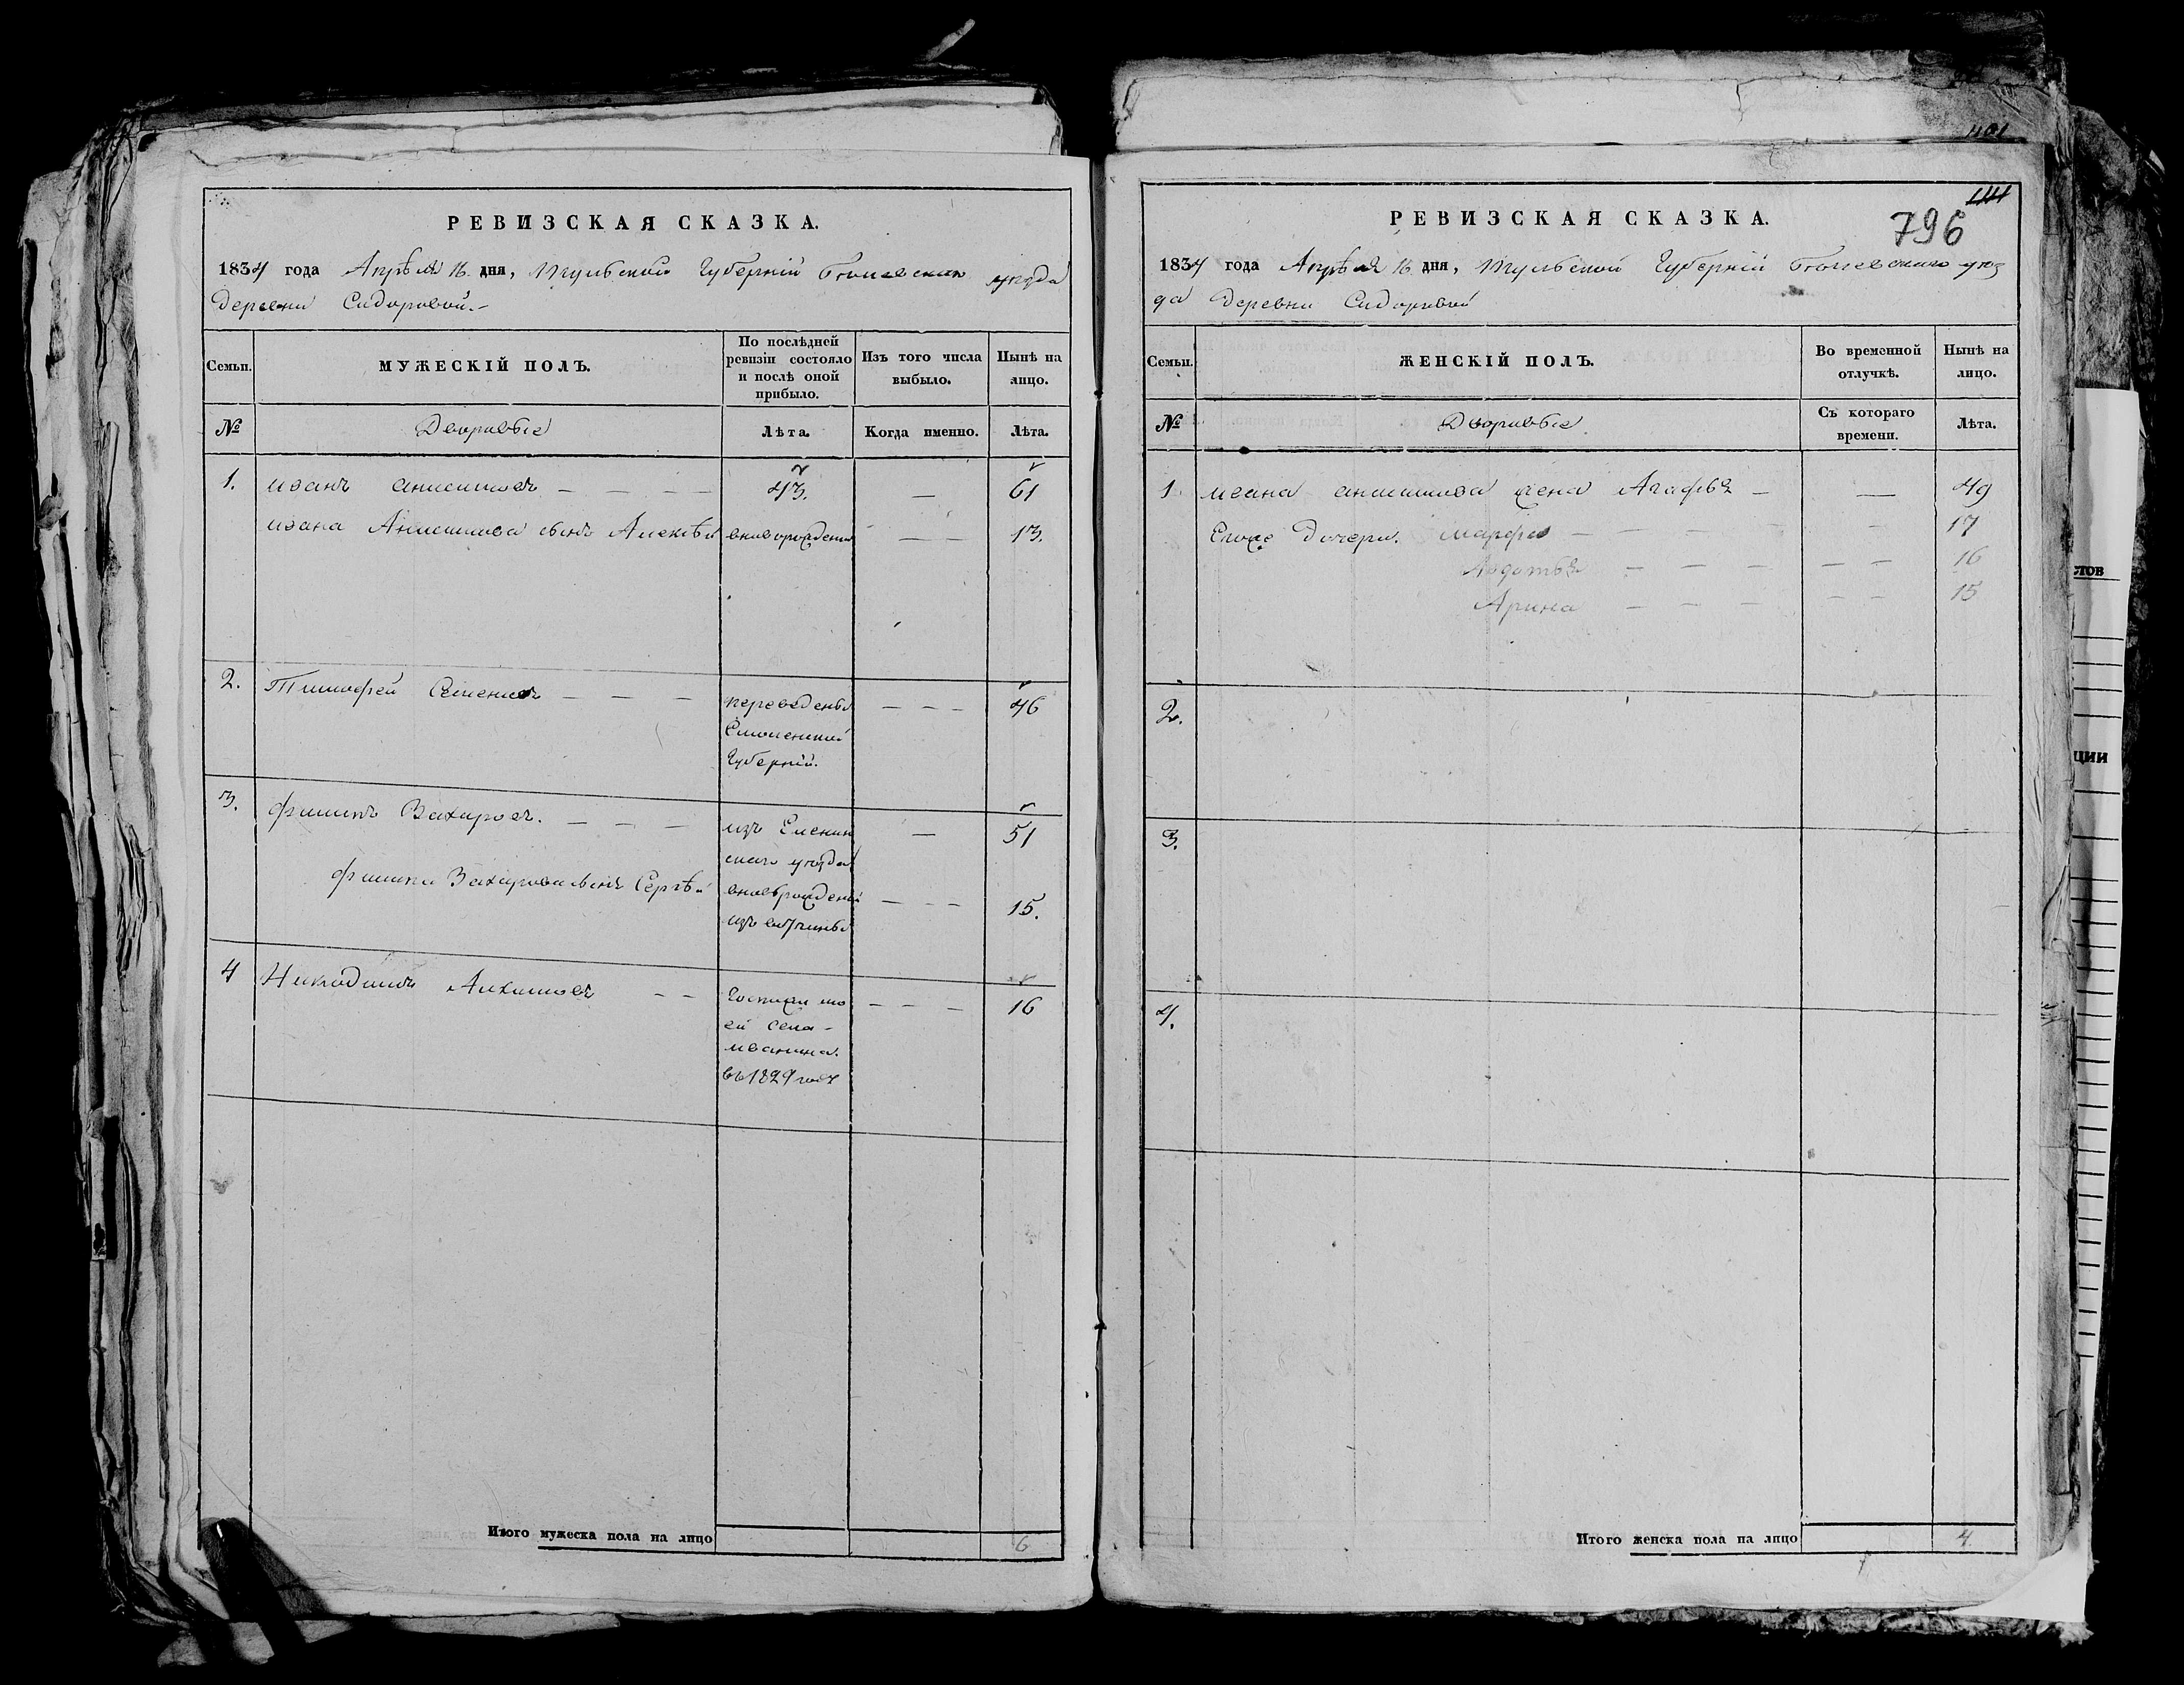 РЕВИЗСКАЯ СКАЗКА.
1834 года Апрѣля 16 дня, Тульской Губерніи Бѣлевскаго уѣзда
Деревни Сидоровой.
Семьи.
МУЖЕСКІЙ ПОЛЪ.
По послѣдней ревизіи состояло и послѣ оной прибыло.
Изъ того числа выбыло.
Нынѣ на лицо.
№
Дворовые
Лѣта.
Когда именно.
Лѣта.
1. иванъ анисимовъ — — — — 43. — 61
ивана Анисимова сынъ Алексѣй вноворожденъ — — 13.
2. Тимофей Семеновъ — — — переведенъ — — — 46
Смоленской
Губерніи.
3. филипъ Захаровъ. — — — изъ Еленин — 51
скаго уѣзда
филипа Захарова сынъ Сергѣй вноврожденой — — — 15.
изъ вотчины
4 Никодимъ — — — — — 16
ей села
иванина.
въ 1829 году
Итого мужеска пола на лицо 6
401
141
796
РЕВИЗСКАЯ СКАЗКА.
1834 года Апрѣля 16 дня, Тульской Губерніи Бѣлевскаго уѣз
да Деревни Сидоровой
Семьи.
ЖЕНСКІЙ ПОЛЪ.
Во временной отлучкѣ.
Нынѣ на лицо.
№
Дворовые
Съ котораго времени.
Лѣта.
1. ивана анисимова жена Агафья — — 49
Егоже Дочери. марфа — — — — — 17
Авдотья — — — — — 16
Арина — — — — — 15
2.
3.
4.
Итого женска пола на лицо 4
стов
ции